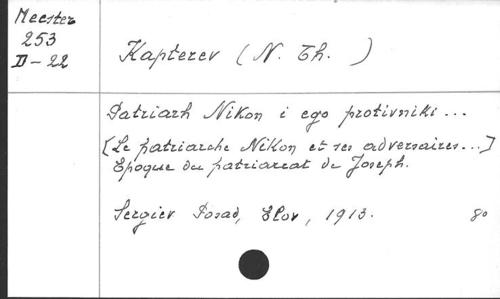 Meester
253
D-22
Kapterev (N. Th. )
Patriarh Nikon i ego protivniki...
[Le patriarche Nikon et ses adversaires...]
Epoque du patriarcat de Joseph.
Sergiev Posad, Elov, 1913. 80